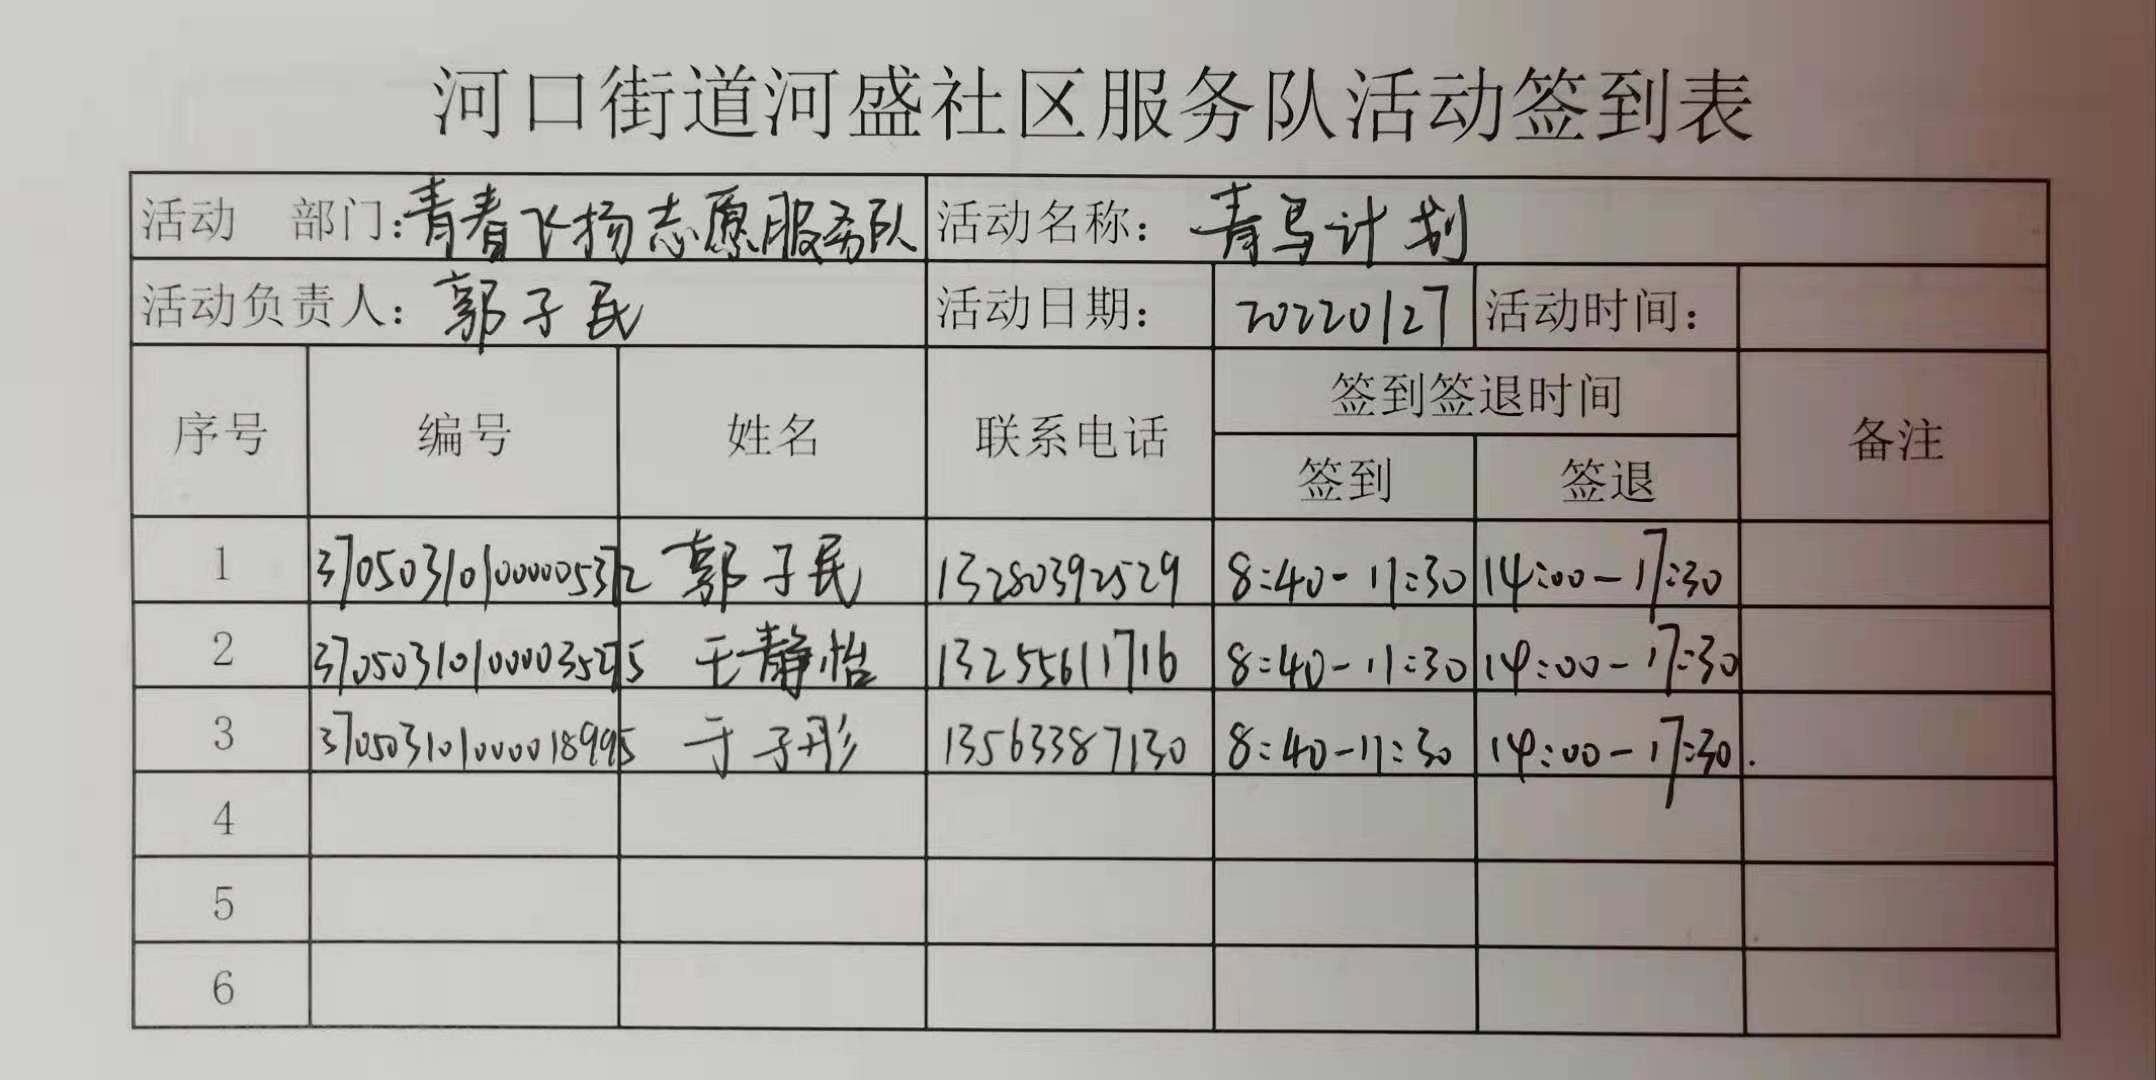 河口街道河盛社区服务队活动签到表
活动 部门:青春飞扬志愿服务队 活动名称: 青马计划
活动负责人: 郭子民 活动日期: 20220127 活动时间:
序号 编号 姓名 联系电话 签到签退时间 备注
签到 签退
1 370503101000005372 郭子民 13280392529 8:40-11:30 14:00-17:30
2 静怡 13255611716 8:40-11:30 14:00-17:30
3 370503101000018995 于子彤 13563387130 8:40-11:30 14:00-17:30.
4
5
6